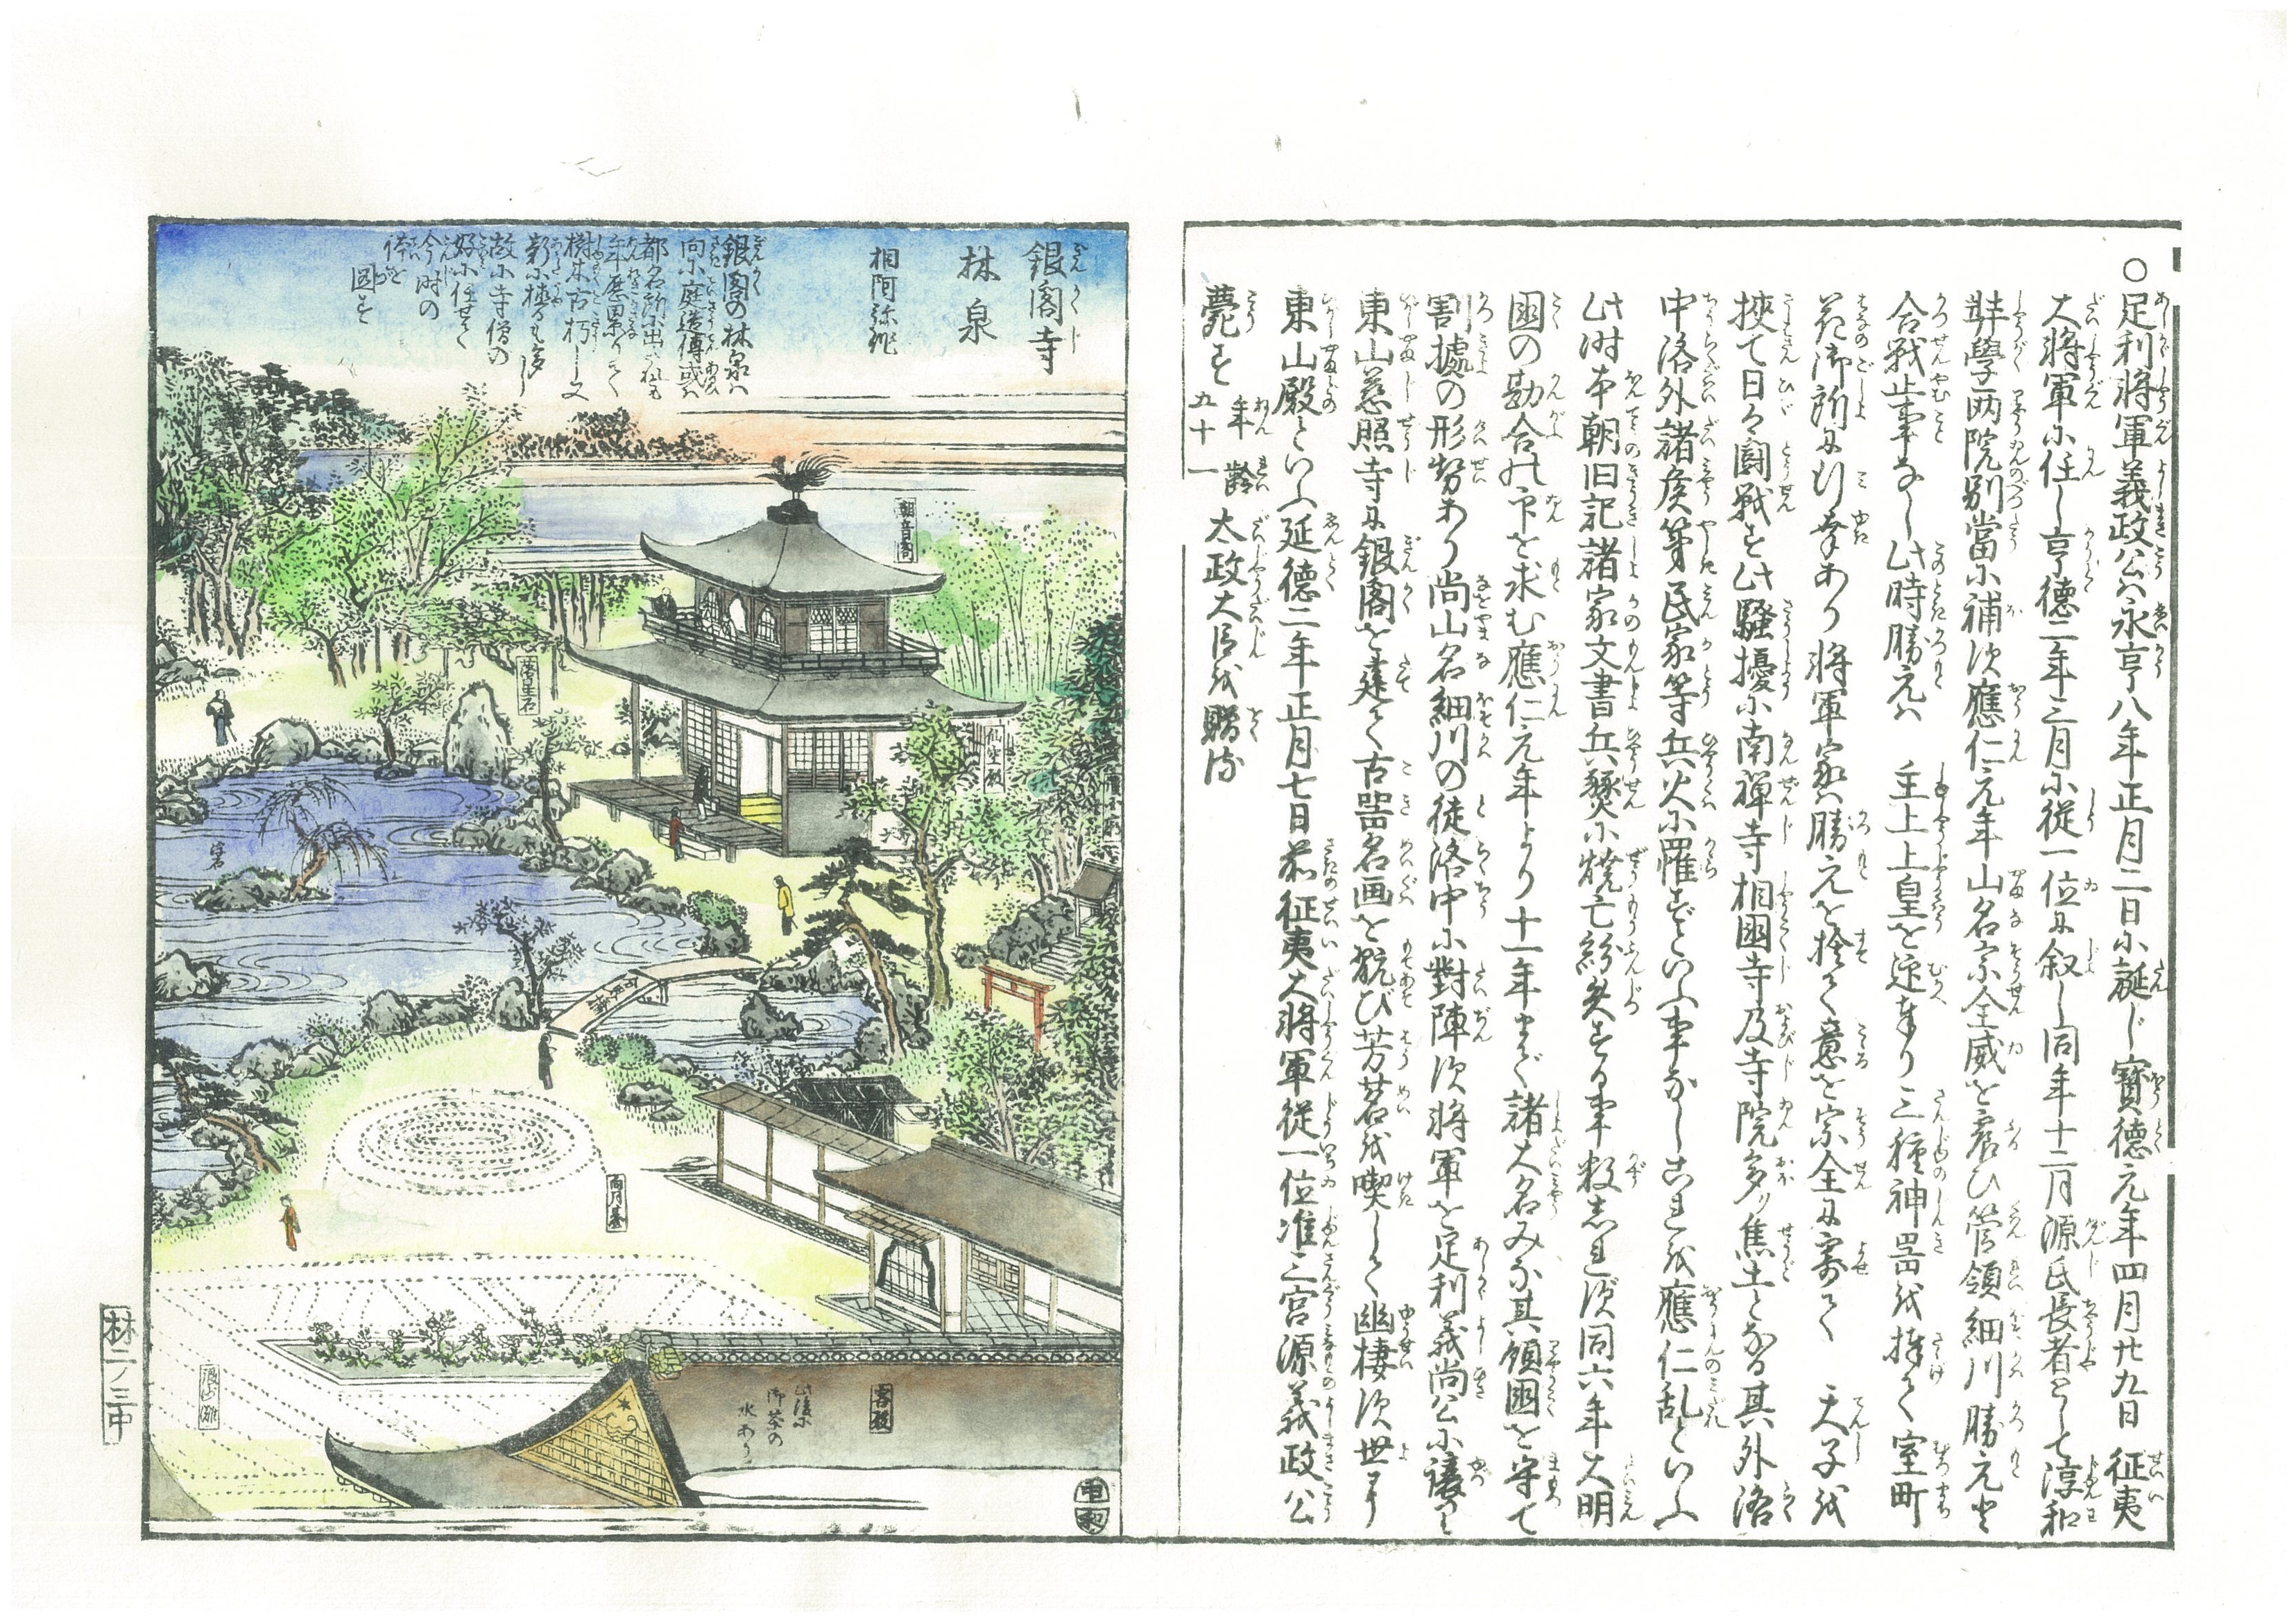 ○足利将軍義政公ハ永亨八年正月二日小誕じ寳徳元年四月廿九日 征夷
大将軍小任し亨徳二年三月小従一位に叙し同年十二月源氏長者として淳和
弉學両院別當小補次應仁元年山名宗全威を震ひ管領細川勝元と
合戦止事なし此時勝元ハ 主上上皇を迎奉り三種神噐を捧て室町
花御所に行幸あり将軍家ハ勝元を捨て意を宗全に寄て 天子を
挾て日々闘戦す此騒擾小南禅寺相國寺及寺院多ク焦土となる其外洛
中洛外諸矦第民家等兵火小罹ずといふ事なしこれを應仁乱といふ
此時本朝旧記諸家文書兵燹小焼亡紛失する事数しれず同六年大明
國の勘合の印を求む應仁元年より十一年まで諸大名みな其領國を守て
割據の形勢あり尚山名細川の徒洛中小對陣次将軍を足利義尚公小譲り
東山慈照寺に銀閣を建て古噐名画を翫び芳茗を喫して幽棲次世に
東山殿といふ延徳二年正月七日前征夷大将軍従一位准三宮源義政公
薨す 年齢五十一 太政大臣を贈る
銀閣寺
林泉
相阿弥作
銀閣の林泉ハ
向小庭造傳或ハ
都名所小出
年歴累りて
樹木古朽し又
新小植るも多し
故小寺僧の
好小任せて
今時の
体を
圖す
潮音閣
向月臺
客殿
此後小
御茶の
水あり
林二ノ三中